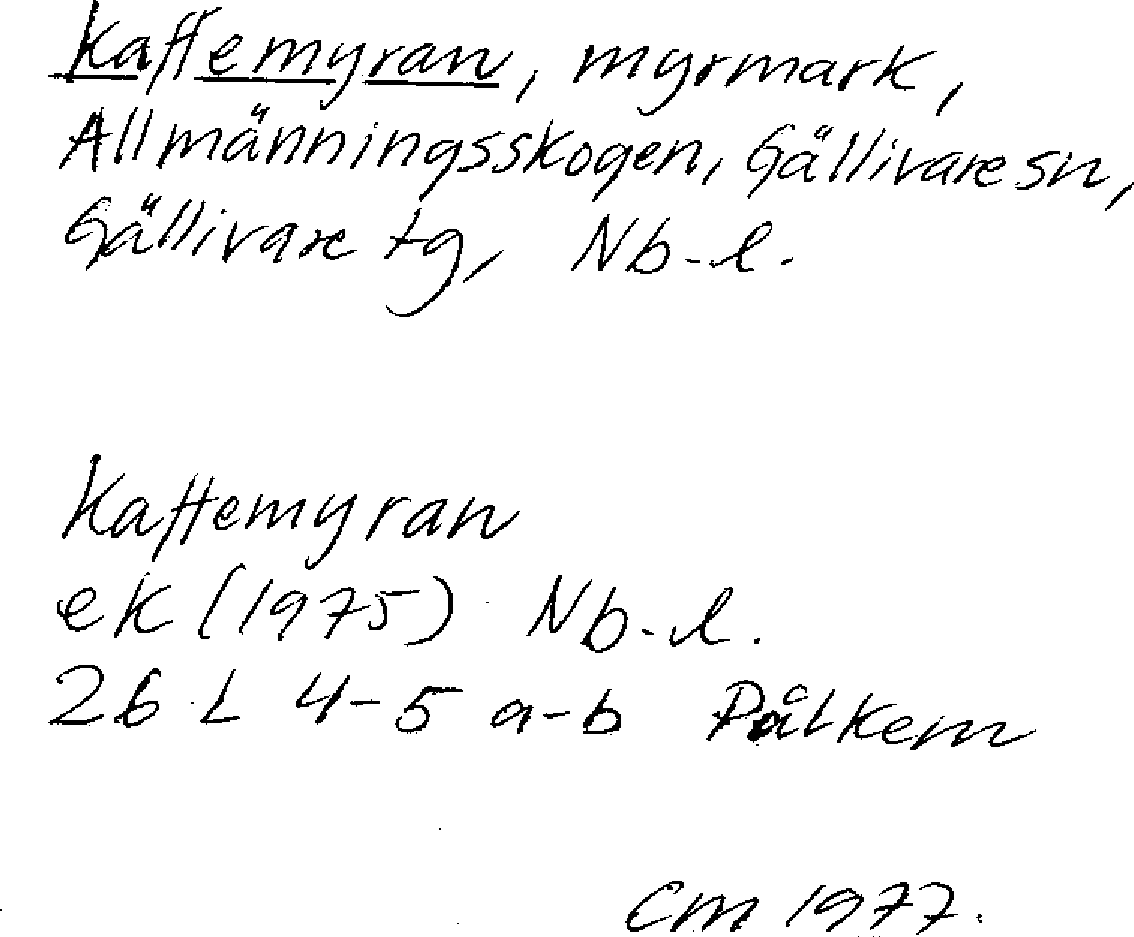 Kaffemyran, myrmark,
Allmänningsskogen, Gällivare sn,
Gällivare tg, Nb-l.
Kaffemyran
ek (1975) Nb-l.
26 L 4-5 a-b Pålkem
CM 1977.